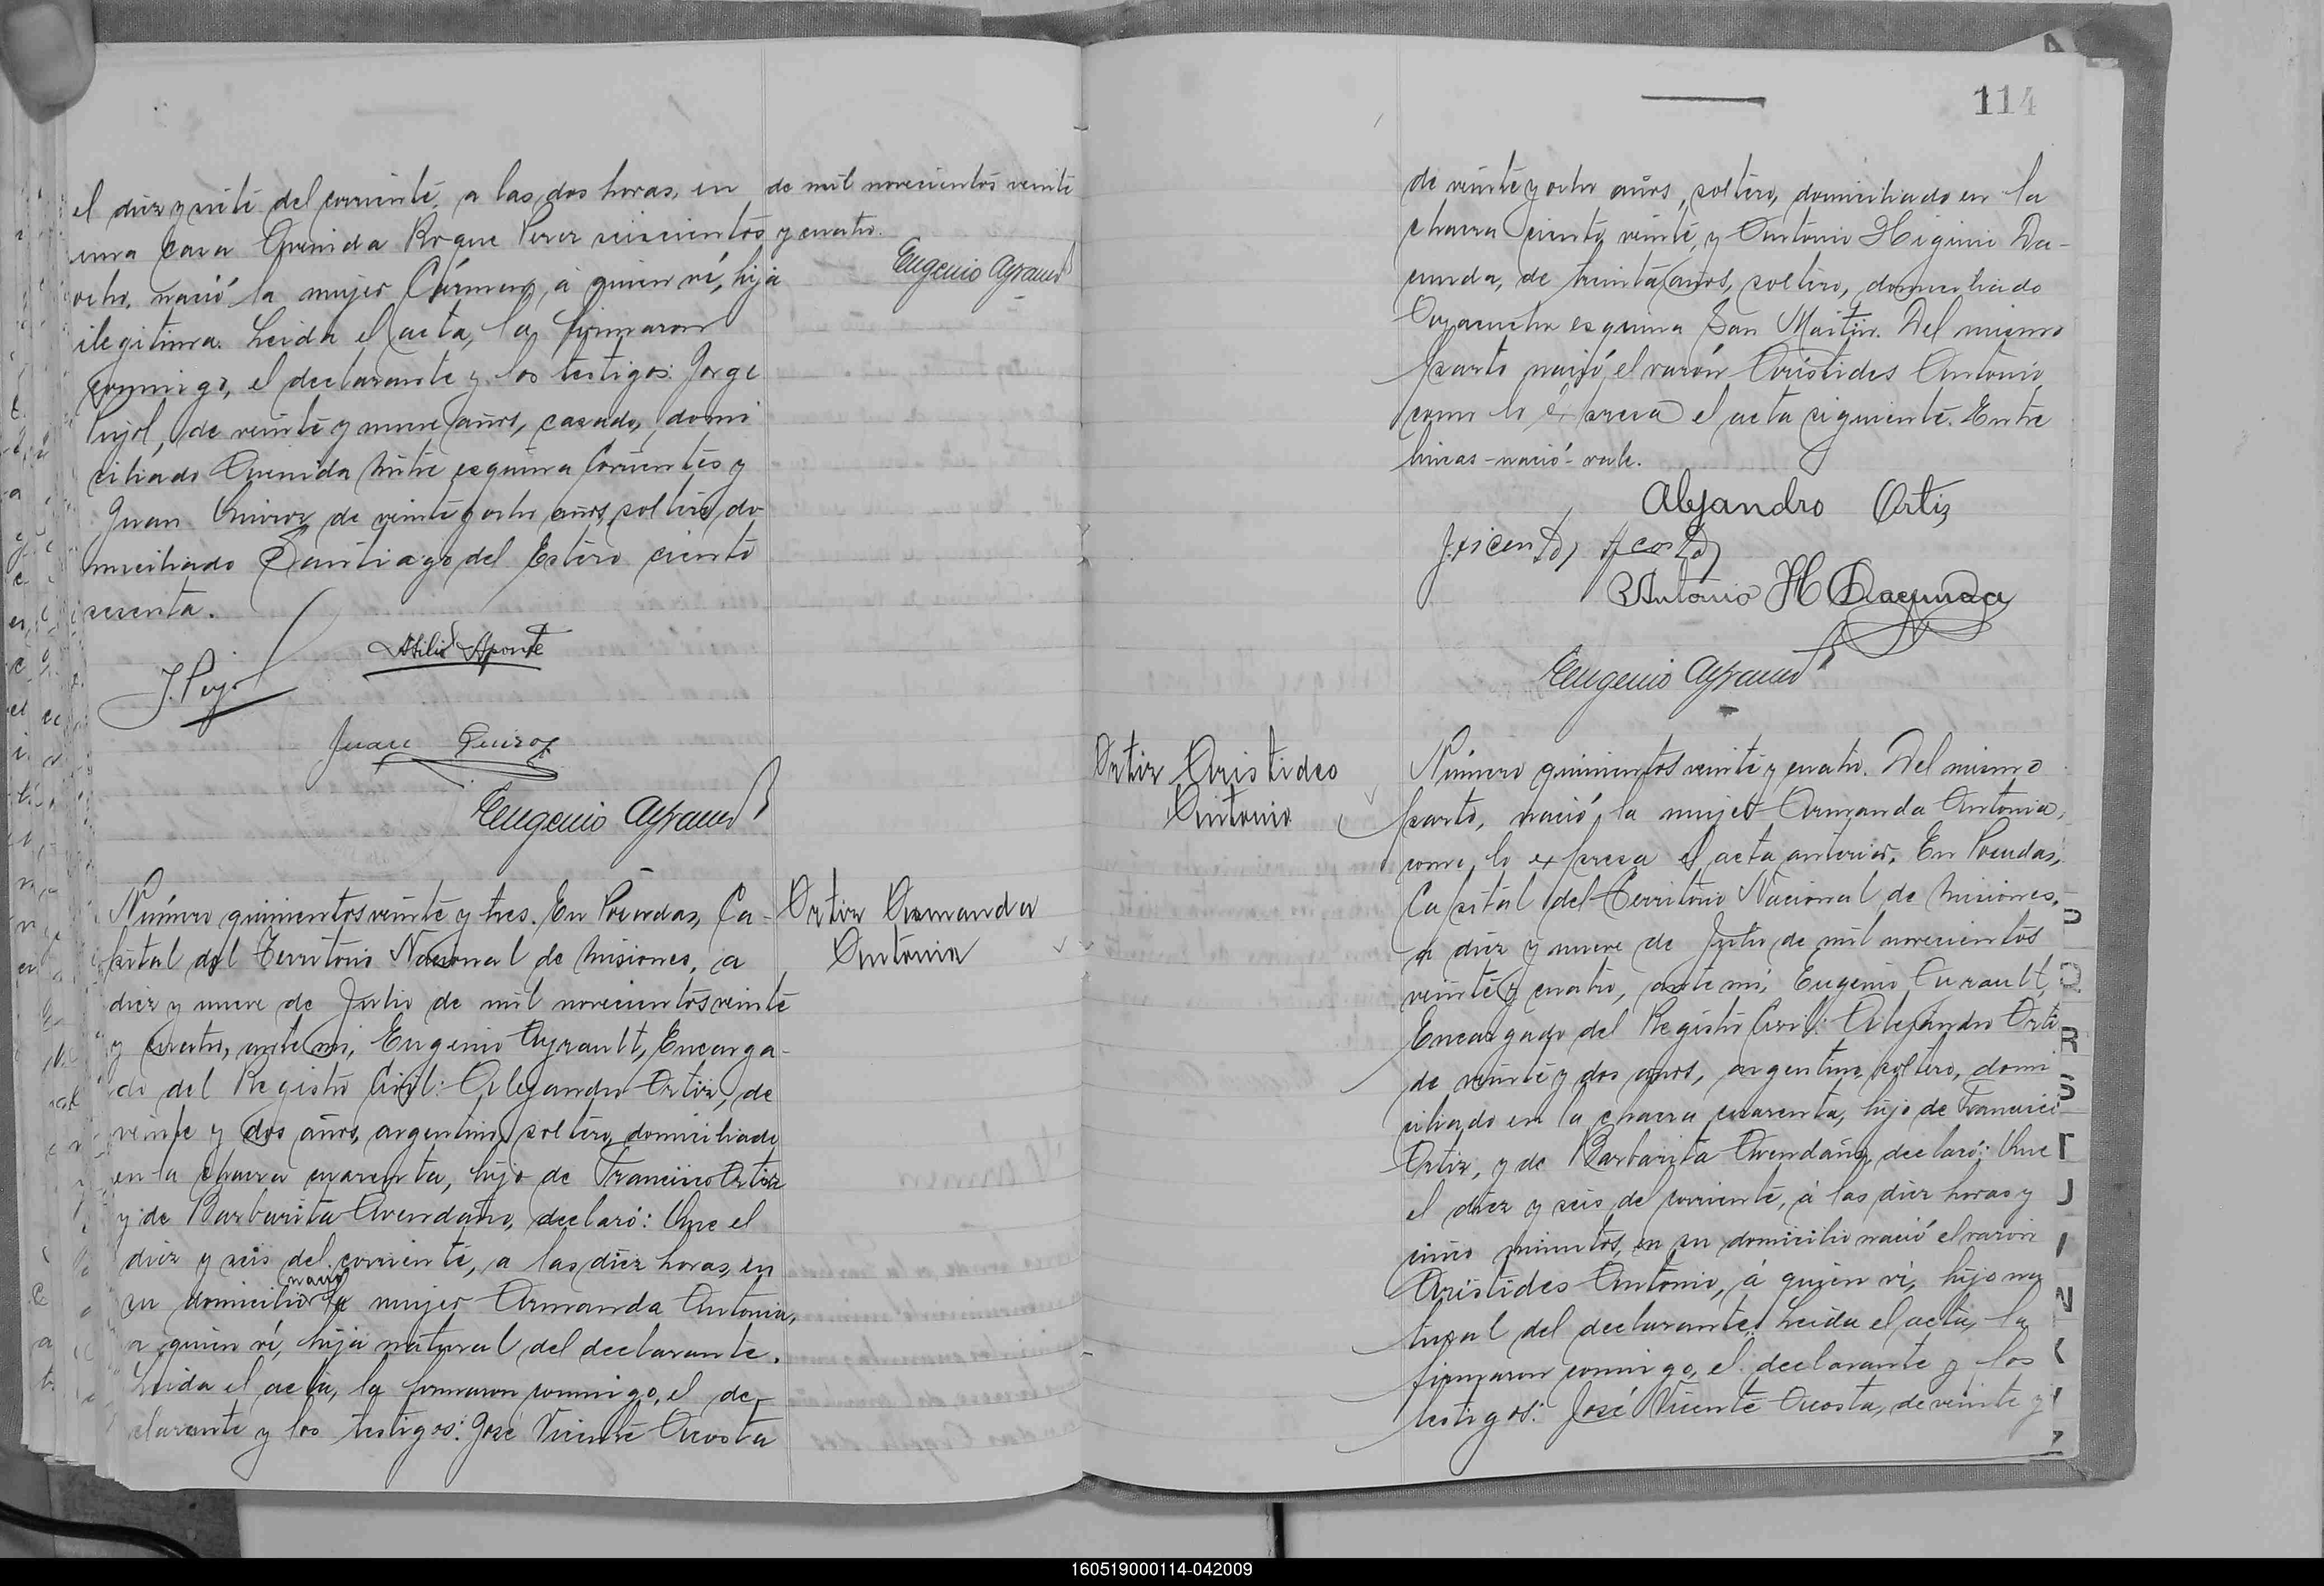 el diez y siete del corriente, a las dos horas, en
una casa Avenida Roque Perez seiscientos
ocho, nació la mujer Cármen, á quien ví, hija
ilegitima. Leida el acta, la firmaron
conmigo, el declarante y los testigos: Jorge
Pujol, de veinte y nueve años, casado, domi
ciliado Avenida Mitre esquina Corrientes y
Juan Quiroz de veinte y ocho años, soltero, do-
miciliado Santiago del Estero ciento
sesenta.
Atilio Aponte
J. Pujol
Juan Quiroz
Eugenio Ayrault
de mil novecientos veinte
y cuatro.
Eugenio Ayrault
Ortiz Armanda
Antonia
Número quinientos veinte y tres. En Posadas, Ca-
pital del Territorio Nacional de Misiones, a
diez y nueve de Julio de mil novecientos veinte
y cuatro, ante mi, Eugenio Ayrault, Encarga-
do del Registro Civil: Alejandro Ortiz, de
veinte y dos años, argentino, soltero, domiciliado
en la chacra cuarenta, hijo de Francisco Ortiz
y de Barbarita Avendaño, declaró: Que el
diez y seis del corriente, a las diez horas, en
nació
su domicilio la mujer Armanda Antonia,
a quien ví, hija natural del declarante.
Leida el acta, la firmaron conmigo, el de-
clarante y los testigos: José Vicente Acosta
114
de veinte y ocho años, soltero, domiciliado en la
chacra ciento veinte, y Antonio Higinio Da-
cunda, de treinta años, soltero, domiciliado
Ayacucho esquina San Martin. Del mismo
parto nació el varón Arístides Antonio
como lo expresa el acta siguiente. Entre
lineas - nació - vale.
Alejandro Ortiz
J. Vicente Acosta
Antonio H Dacunda
Eugenio Ayrault
Ortiz Aristides
Antonio
Número quinientos veinte y cuatro. Del mismo
parto, nació la mujer Armanda Antonia,
como lo expresa el acta anterior. En Posadas,
Capital del Territorio Nacional de Misiones,
a diez y nueve de Julio de mil novecientos
veinte y cuatro, ante mi, Eugenio Ayrault,
Encargado del Registro Civil: Alejandro Orti
de veinte y dos años, argentino, soltero, domi
ciliado en la chacra cuarenta, hijo de Francisco
Ortiz, y de Barbarita Avendaño, declaró: Que
el diez y seis del corriente, á las diez horas y
cinco minutos, en su domicilio nació el varón
Arístides Antonio, á quien ví, hijo na
tural del declarante. Leida el acta, la
firmaron conmigo, el declarante y los
testigos: José Vicente Acosta, de veinte y
160519000114-042009